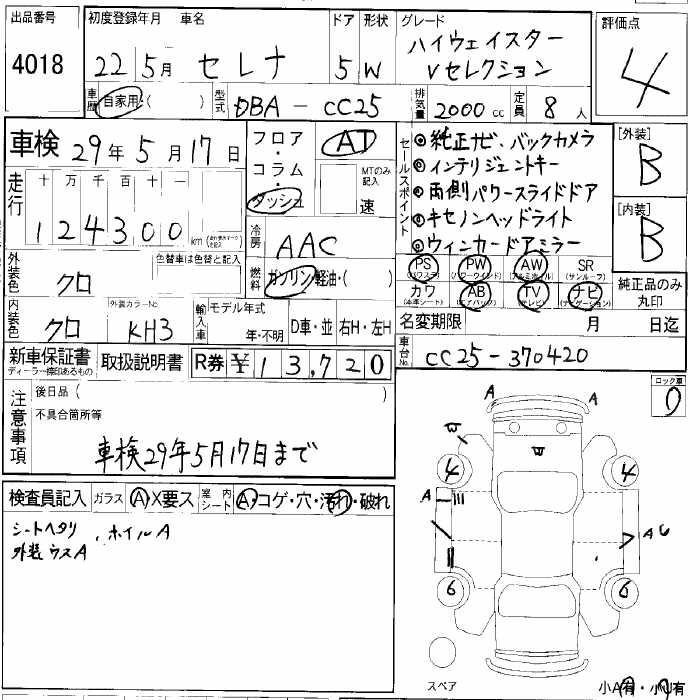 出品番号 初度登録年月 車名 ドア 形状 グレード 評価点
4018 22年5月 セレナ 5 W ハイウェイスター Vセレクション 4
車歴 自家用・( ) 型式 DBA-CC25 排気量 2000cc 定員 8人
車検 29年5月17日
フロア・コラム・ダッシュ AT
MTのみ記入 速
セールスポイント
◎純正ナビ、バックカメラ
◎インテリジェントキー
◎両側パワースライドドア
◎キセノンヘッドライト
◎ウィンカードアミラー
[外装] B
[内装] B
走行 十 万 千 百 十 一
124300 km
冷房 AAC
外装色 クロ 色替車は色替と記入
燃料 ガソリン・軽油・( )
PS (パワステ) PW (パワーウインド) AW (アルミホイル) SR (サンルーフ)
カワ (本革シート) AB (エアバッグ) TV (テレビ) ナビ (ナビゲーション)
純正品のみ丸印
内装色 クロ 外装カラーNo KH3
輸入車 モデル年式 年・不明 D車・並 右H・左H
名変期限 月 日迄
新車保証書 ディーラー捺印あるもの 取扱説明書 R券 ¥13,720
車台No. CC25-370420
注意事項
後日品 ( )
不具合箇所等
車検29年5月17日まで
ロック車 0
検査員記入 ガラス A・X要ス 室内シート A・コゲ・穴・汚れ・破れ
シートヘタリ、ホイルA
外装ウスA
A A
W W
4 4
A
A6
6 6
スペア 小A有・小U有